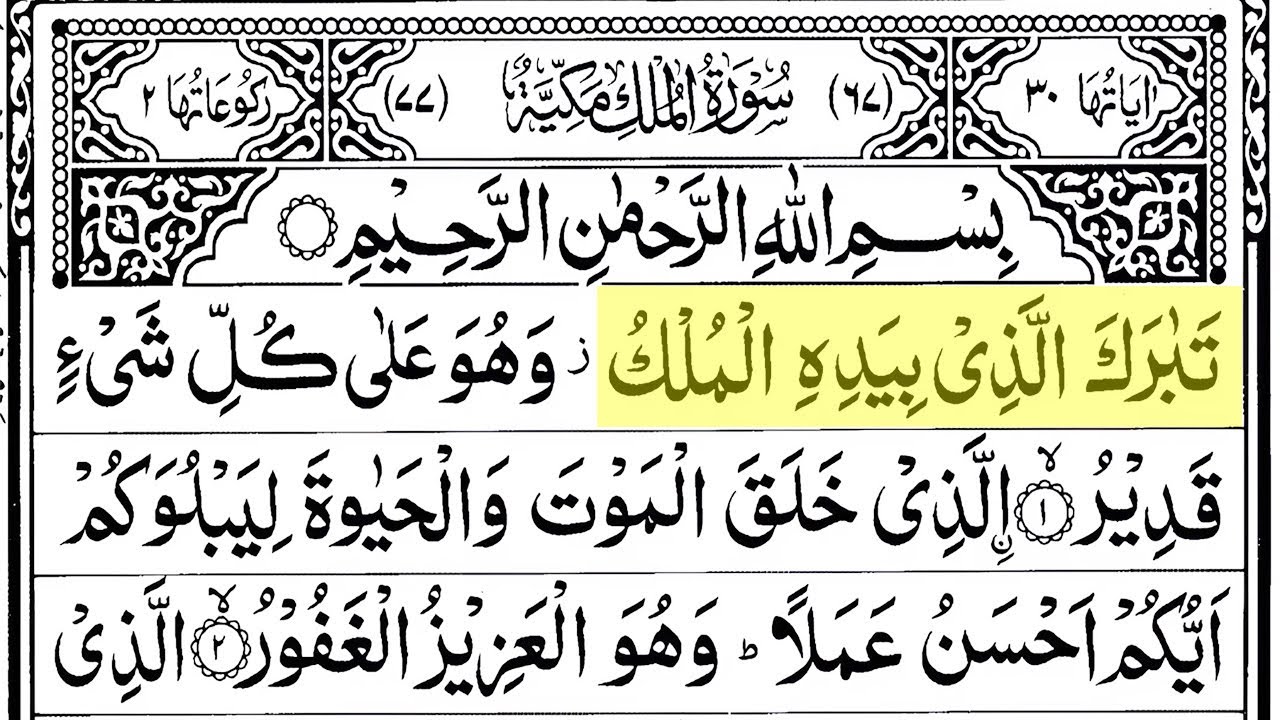 اٰيَاتُهَا ٣٠ (٦٧) سُوْرَةُ الْمُلْكِ مَكِّيَّةٌ (٧٧) رُكُوْعَاتُهَا ٢
بِسْمِ اللّٰهِ الرَّحْمٰنِ الرَّحِيْمِ
تَبٰرَكَ الَّذِیْ بِیَدِهِ الْمُلْكُ ز وَهُوَ عَلٰی كُلِّ شَیْءٍ
قَدِیْرُ ۙ‏﴿١﴾ اۨلَّذِیْ خَلَقَ الْمَوْتَ وَالْحَیٰوةَ لِیَبْلُوَكُمْ
اَیُّكُمْ اَحْسَنُ عَمَلًا ؕ وَهُوَ الْعَزِیْزُ الْغَفُوْرُ ۙ﴿٢﴾ الَّذِیْ